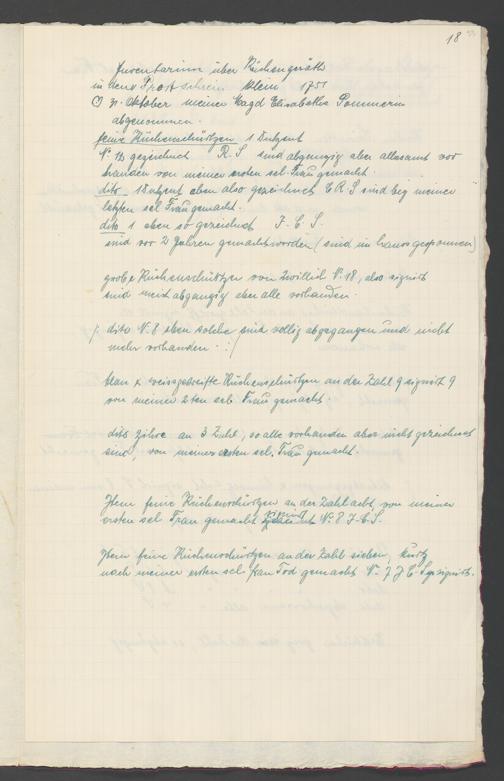 18
Inventarium über Küchengeräth
in dem Prost schrein klein 1751
31. Oktober meiner Magd Elisabetha Pommerin
abgenommen.
feine Küchenschürtzen 1 Dutzent
N: 12 gezeichnet R. S sind abgengig aber allesamt vor
handen von meiner ersten sel. Frau gemacht.
dito 1 Dutzent eben also gezeichnet E R S sind beg meiner
letzten sel Frau gemacht.
dito 1 eben so gezeichnet J. C S.
sind vor 2 Jahren gemacht worden (sind im hause gesponnen)
grobe Küchenschürtzen von Zwillich N: 18, also signirt
sind meist abgangig aber alle vorhanden.
/: dito N: 8 eben solche sind vollig abgegangen und nicht
mehr vorhanden. :/
blau & weissgestreifte Küchenschürtzen an der Zahl 9 signirt 9
von meiner 2ten sel. Frau gemacht.
dito an 3 Zahl, so alle vorhanden aber nicht gezeichnet
sind, von meiner ersten sel. Frau gemacht.
Item feine Küchenschürtzen an der Zahl acht, von meiner
ersten sel Frau gemacht signirt N: 8 J. C. S.
Item feine Küchenschürtzen an der Zahl sieben, kurtz
nach meiner ersten sel frau Tod gemacht N: 7 J C S signirt.